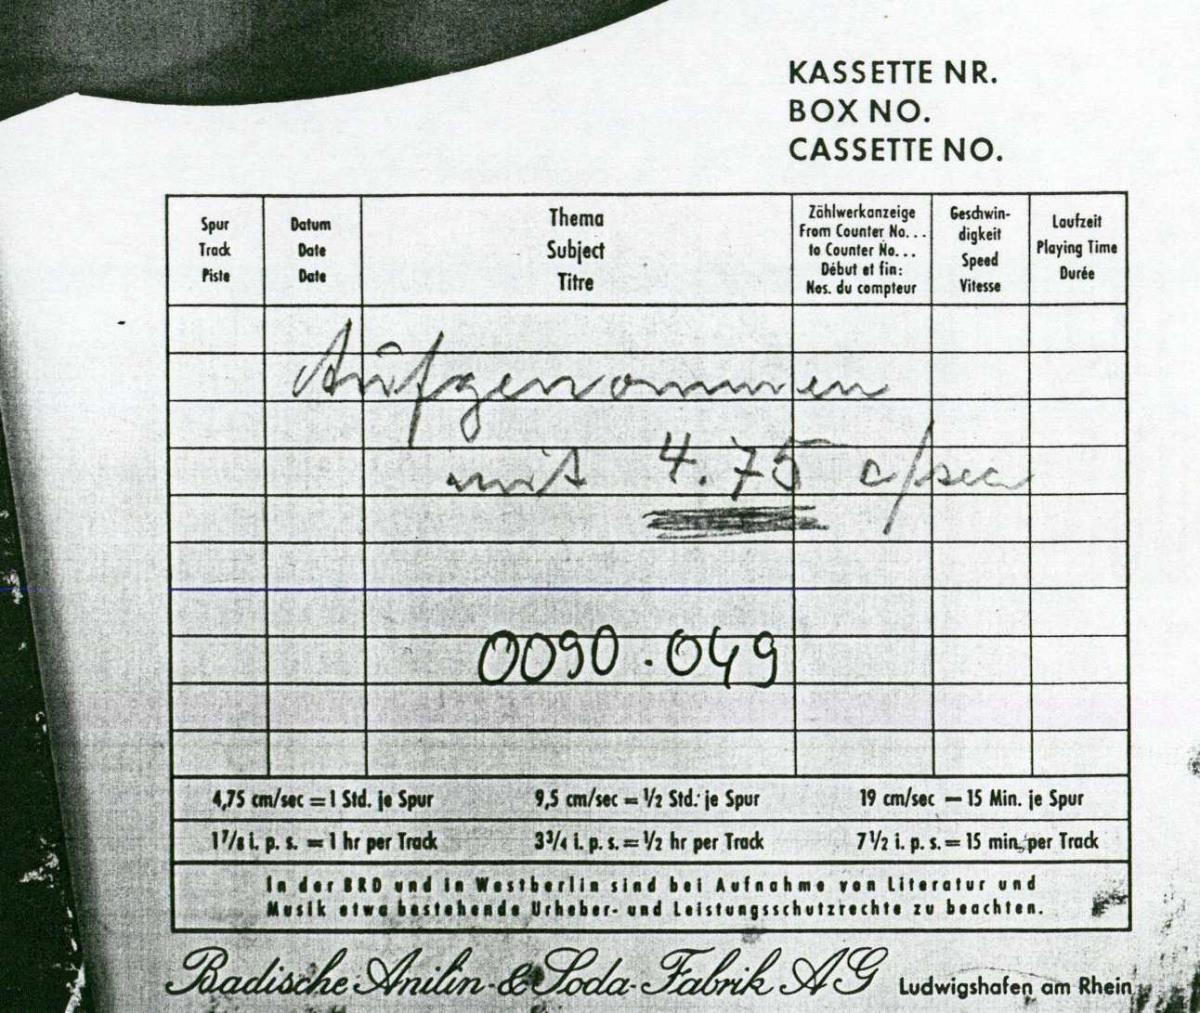 KASSETTE NR.
BOX NO.
CASSETTE NO.
Spur
Track
Piste
Datum
Date
Date
Thema
Subject
Titre
Zählwerkanzeige
From Counter No...
to Counter No...
Début et fin:
Nos. du compteur
Geschwin-
digkeit
Speed
Vitesse
Laufzeit
Playing Time
Durée
Aufgenommen
mit 4.75 c/sec
0090.049
4,75 cm/sec = 1 Std. je Spur 9,5 cm/sec = 1/2 Std. je Spur 19 cm/sec — 15 Min. je Spur
1 7/8 i. p. s. = 1 hr per Track 3 3/4 i. p. s. = 1/2 hr per Track 7 1/2 i. p. s. = 15 min. per Track
In der BRD und in Westberlin sind bei Aufnahme von Literatur und
Musik etwa bestehende Urheber- und Leistungsschutzrechte zu beachten.
Badische Anilin- & Soda-Fabrik AG Ludwigshafen am Rhein